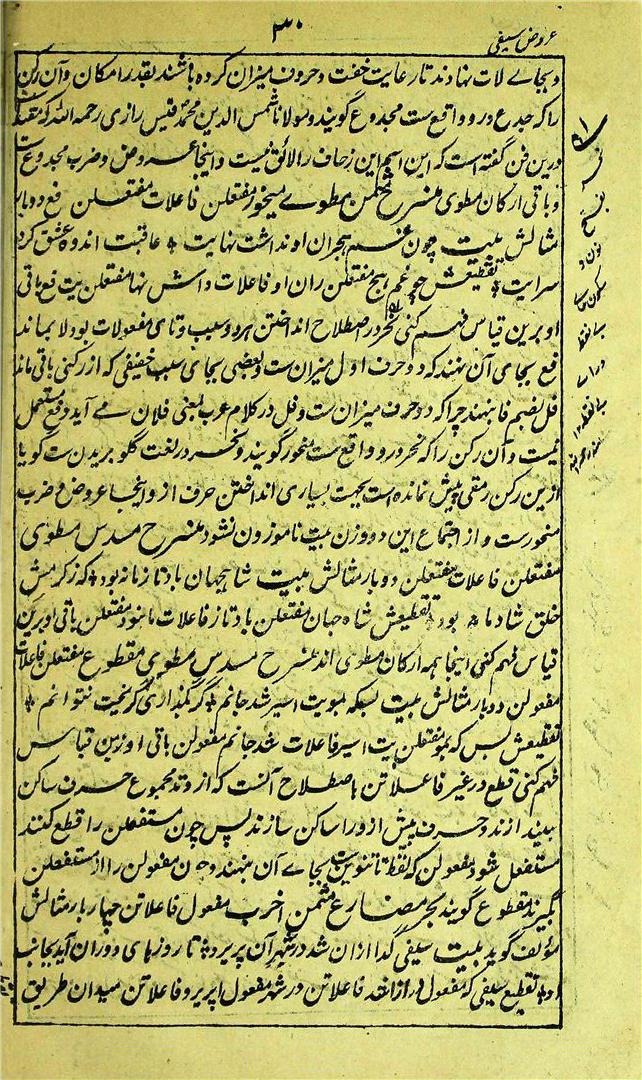 ۳۰
عروض سیفی
و بجاے لات نهادند تا رعایت خفت و حروف میزان کرده باشند بقدر امکان و آن رکن
را که جدع درو واقع ست مجدوع گویند و مولانا شمس الدین محمد قیس رازی رحمه الله که
درین فن گفته است که این اسم این زحاف را لائق نیست و اینجا عروض و ضرب مجدوع ست
و باقی ارکان مطوی منسرح مثمن مطوے منحور مفتعلن فاعلات مفتعلن فع دو بار
مثالش بیت چون غم هجران او نداشت نهایت * عاقبت اندوه عشق کرد
سرایت * تقطیعش چو غم هج مفتعلن ران او فاعلات داشش نها مفتعلن یت فع باقی
او برین قیاس فهم کنی نحر در اصطلاح انداختن هر دو سبب و تای مفعولات بود لا بماند
فع بجای آن نهند که دو حرف اول میزان ست و بعضی بجای سبب خفیفی که از رکنی باقی ماند
فل بضم فا بنهند چرا که دو حرف میزان ست و فل در کلام عرب بمعنی فلان مے آید و فع مستعمل
نیست و آن رکن را که نحر درو واقع ست منحور گویند و نحر در لغت گلو بریدن ست گویا
ازین رکن رمقی بیش نمانده است بجهت بسیاری انداختن حرف از و اینجا عروض و ضرب
منحورست و از اجتماع این دو وزن بیت ناموزون نشود منسرح مسدس مطوی
مفتعلن فاعلات مفتعلن دو بار مثالش بیت شاه جهان باد تا زمانه بود * که ز کرمش
خلق شادما * بود تقطیعش شاه جهان مفتعلن باد تا ز فاعلات ما نبود مفتعلن باقی او برین
قیاس فهم کنی اینجا همه ارکان مطوی اند منسرح مسدس مطوی مقطوع مفتعلن فاعلات
مفعولن دو بار مثالش بیت بسکه بمویت اسیر شد جانم * گر بگذاری گریخت نتوانم *
تقطیعش بس که بمو مفتعلن یت اسیر فاعلات شد جانم مفعولن باقی او زین قیاس
فهم کنی قطع در غیر فاعلاتن باصطلاح آنست که از وتد مجموع حرف ساکن
بیندازند و حرف پیش از و را ساکن سازند پس چون مستفعلن را قطع کنند
مستفعل شود مفعولن که لفظ با تنوین ست بجاے آن بنهند و چون مفعولن را از مستفعلن
گیرند مقطوع گویند بحر مضارع مثمن اخرب مفعول فاعلاتن چهار بار مثالش
مؤلف گوید بیت سیفی گدا ازان شد در شهر آن پریرو * تا روزهای دوران آید بجانب
او * تقطیع سیفی که مفعول دا ازان شد فاعلاتن در شهر مفعول ا پریرو فاعلاتن میدان طریق